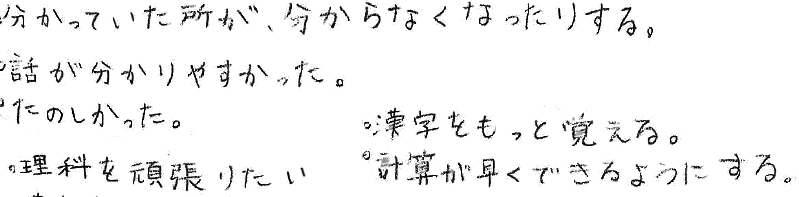 分かっていた所が、分からなくなったりする。
。話が分かりやすかった。
。たのしかった。
。漢字をもっと覚える。
。理科を頑張りたい
。計算が早くできるようにする。